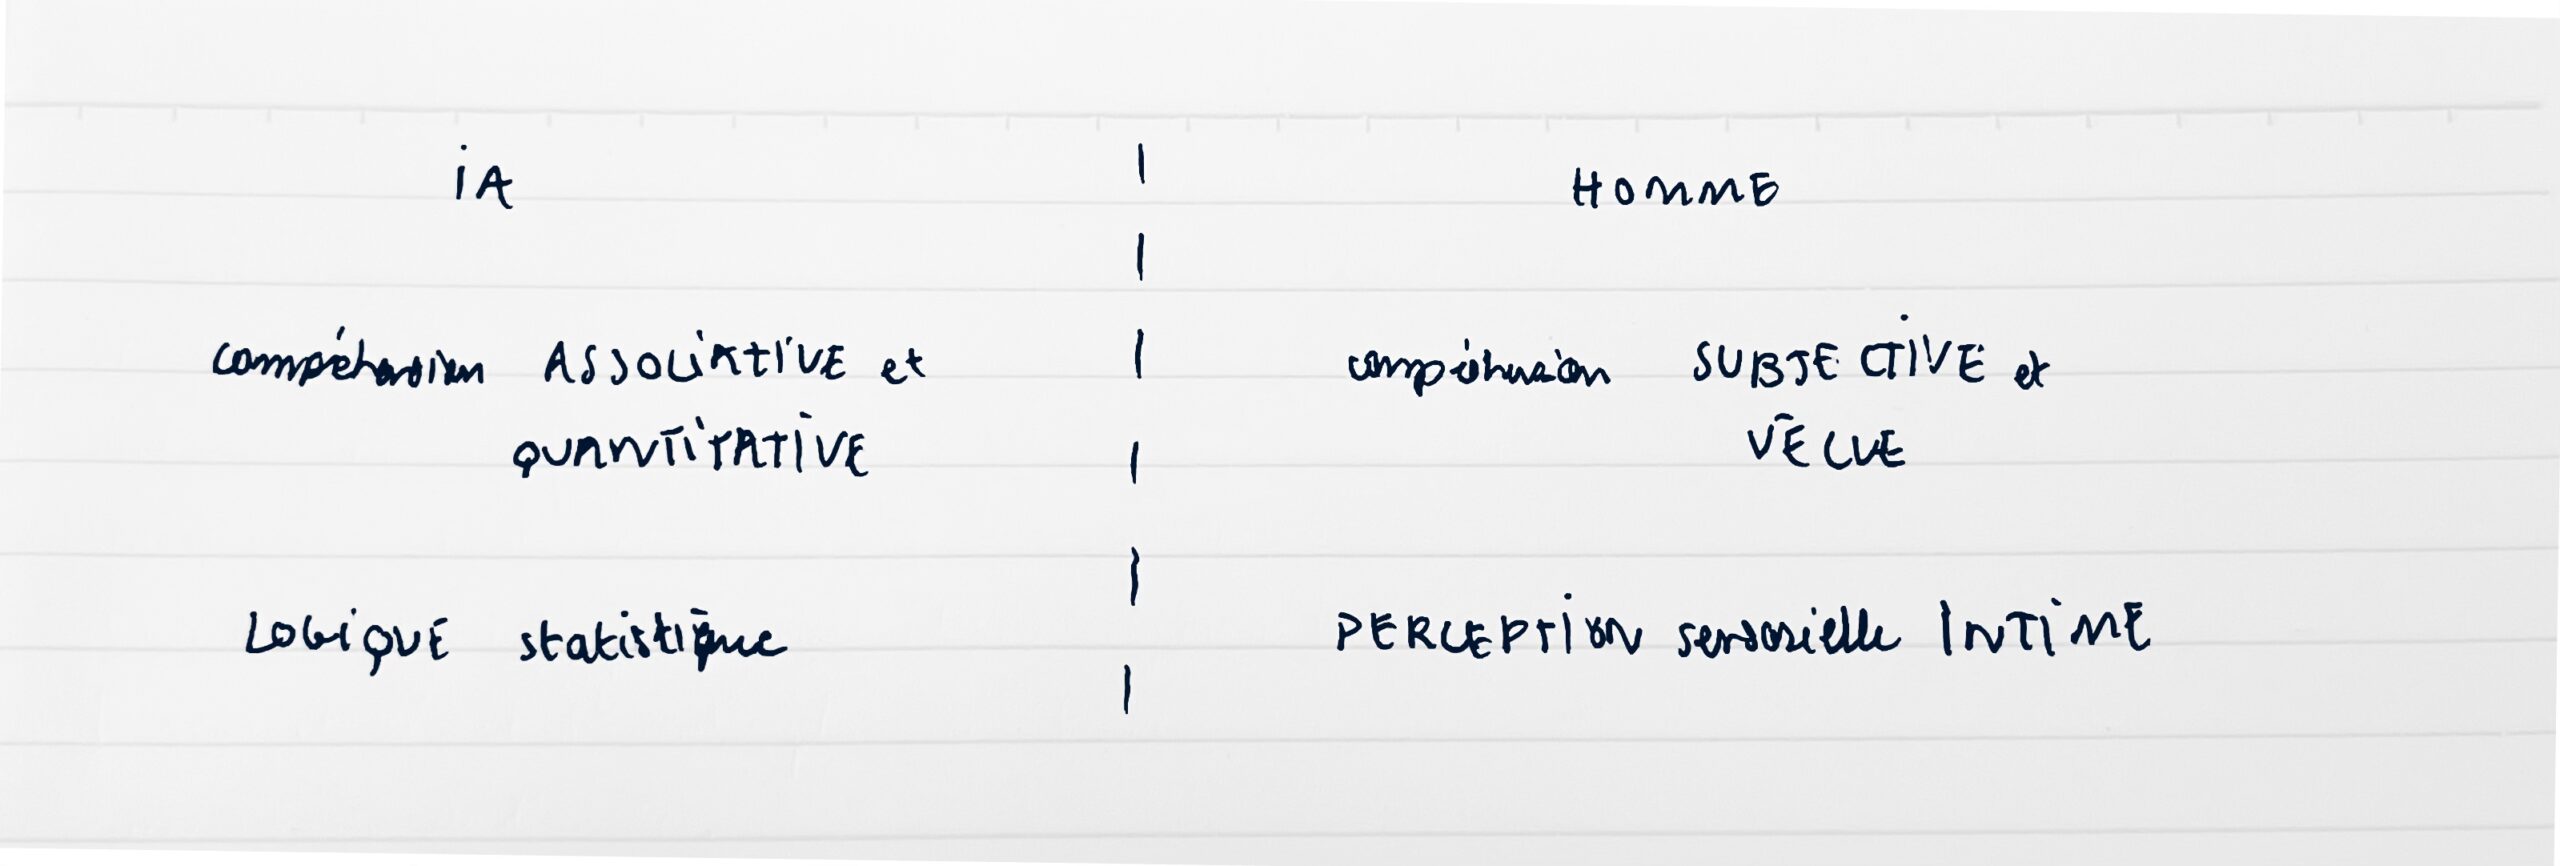 iA
HOMME
compréhension ASSOCIATIVE et
QUANTITATIVE
compréhension SUBJECTIVE et
VÉCUE
LOGIQUE statistique
PERCEPTION sensorielle INTIME